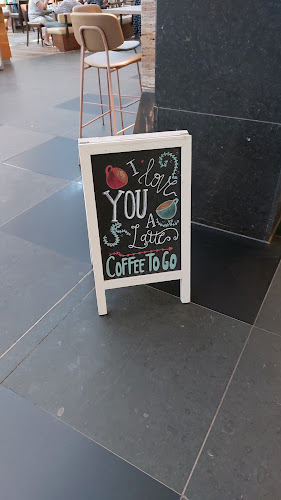 I love
YOU
A
Latte
COFFEE TO GO